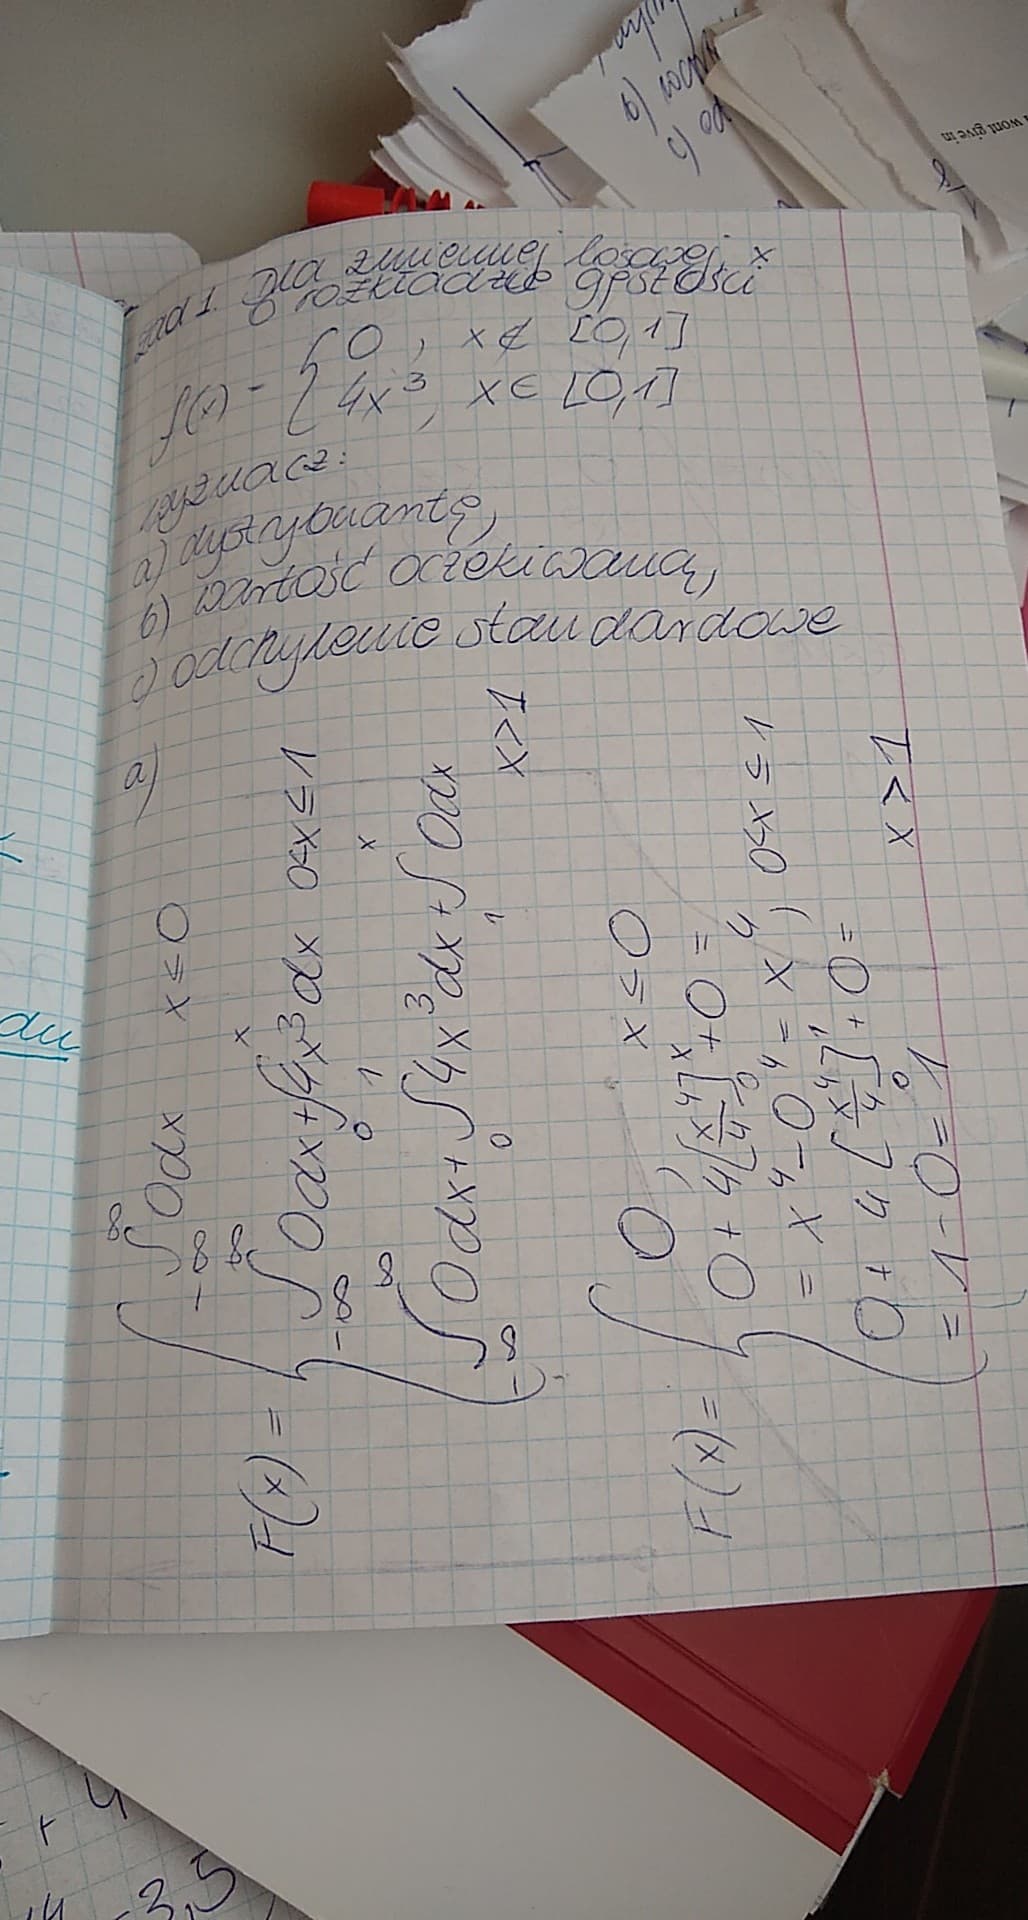 zad 1 Dla zmiennej losowej X
o rozkładzie gęstości
f(x) = { 0, x ∉ [0,1]
4x³, x ∈ [0,1]
wyznacz:
a) dystrybuantę,
b) wartość oczekiwaną,
c) odchylenie standardowe
a)
∫_{-∞}^{∞} 0dx x ≤ 0
F(x) = { ∫_{-∞}^{+∞} 0dx + ∫_0^x 4x³dx 0<x≤1
∫_{-∞}^{∞} 0dx + ∫_0^1 4x³dx + ∫_1^x 0dx
x>1
0, x ≤ 0
F(x) = { 0 + 4[x⁴/4]_0^x + 0 =
= x⁴ - 0⁴ = x⁴, 0<x ≤ 1
0 + 4[x⁴/4]_0^1 + 0 =
x > 1
= 1 - 0 = 1
wont give in